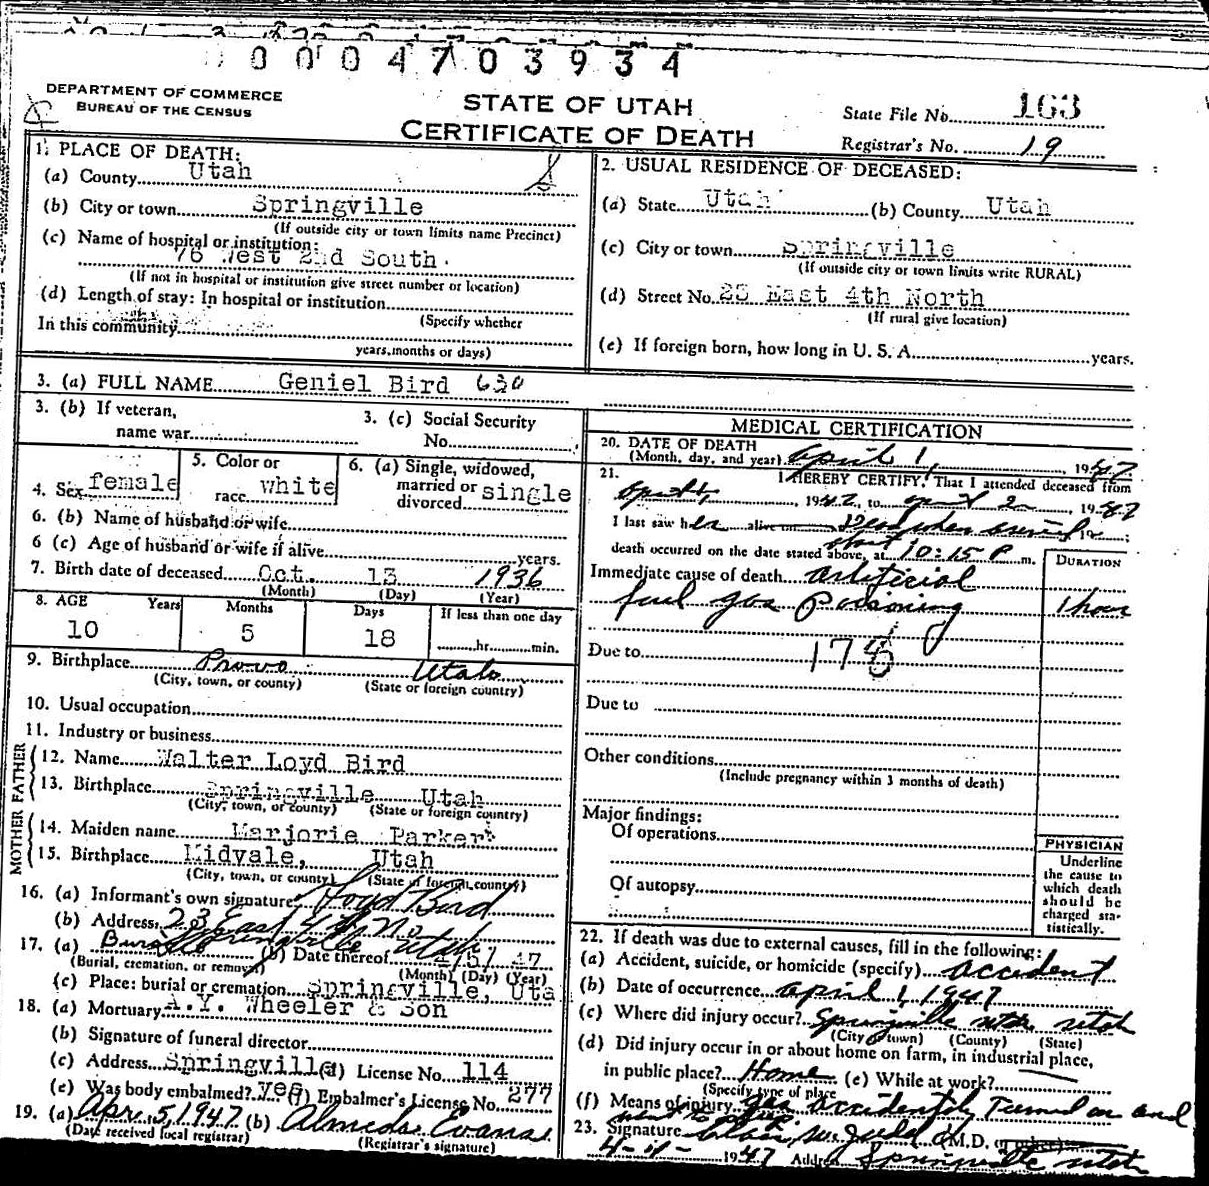 0004703934
DEPARTMENT OF COMMERCE
BUREAU OF THE CENSUS
STATE OF UTAH
CERTIFICATE OF DEATH
State File No. 163
Registrar's No. 19
1. PLACE OF DEATH:
(a) County Utah
(b) City or town Springville
(If outside city or town limits name Precinct)
(c) Name of hospital or institution:
76 West 2nd South
(If not in hospital or institution give street number or location)
(d) Length of stay: In hospital or institution
(Specify whether
In this community
years, months or days)
2. USUAL RESIDENCE OF DECEASED:
(a) State Utah (b) County Utah
(c) City or town Springville
(If outside city or town limits write RURAL)
(d) Street No. 23 East 4th North
(If rural give location)
(e) If foreign born, how long in U. S. A. years.
3. (a) FULL NAME Geniel Bird 630
3. (b) If veteran,
name war
3. (c) Social Security
No.
4. Sex female
5. Color or
race white
6. (a) Single, widowed,
married or
divorced single
6. (b) Name of husband or wife
6 (c) Age of husband or wife if alive years.
7. Birth date of deceased Oct. 13 1936
(Month) (Day) (Year)
8. AGE Years Months Days If less than one day
10 5 18 hr. min.
9. Birthplace Provo Utah
(City, town, or county) (State or foreign country)
10. Usual occupation
11. Industry or business
FATHER
12. Name Walter Loyd Bird
13. Birthplace Springville Utah
(City, town, or county) (State or foreign country)
MOTHER
14. Maiden name Marjorie Parker
15. Birthplace Midvale, Utah
(City, town, or county) (State or foreign country)
16. (a) Informant's own signature Loyd Bird
(b) Address 23 East 4th No.
Springville Utah
17. (a) Burial (b) Date thereof 4/5/47
(Burial, cremation, or removal) (Month) (Day) (Year)
(c) Place: burial or cremation Springville, Uta
18. (a) Mortuary A.Y. Wheeler & Son
(b) Signature of funeral director
(c) Address Springville (d) License No. 114
(e) Was body embalmed? yes (f) Embalmer's License No. 277
19. (a) Apr. 5, 1947 (b) Almeda Evans
(Date received local registrar) (Registrar's signature)
MEDICAL CERTIFICATION
20. DATE OF DEATH
(Month, day, and year) April 1, 1947
21. I HEREBY CERTIFY, That I attended deceased from
1947, to April 2 1947
I last saw her alive on Dead when 19 ;
death occurred on the date stated above, at 10:15 P m.
DURATION
Immediate cause of death artificial
fuel gas poisoning 1 hour
Due to 178
Due to
Other conditions
(Include pregnancy within 3 months of death)
Major findings:
Of operations
Of autopsy
PHYSICIAN
Underline
the cause to
which death
should be
charged sta-
tistically.
22. If death was due to external causes, fill in the following:
(a) Accident, suicide, or homicide (specify) accident
(b) Date of occurrence April 1, 1947
(c) Where did injury occur? Springville Utah Utah
(City or town) (County) (State)
(d) Did injury occur in or about home on farm, in industrial place,
in public place? Home (e) While at work?
(Specify type of place
(f) Means of injury gas accidently turned on and
23. Signature M.D. or other)
1947 Address Springville Utah